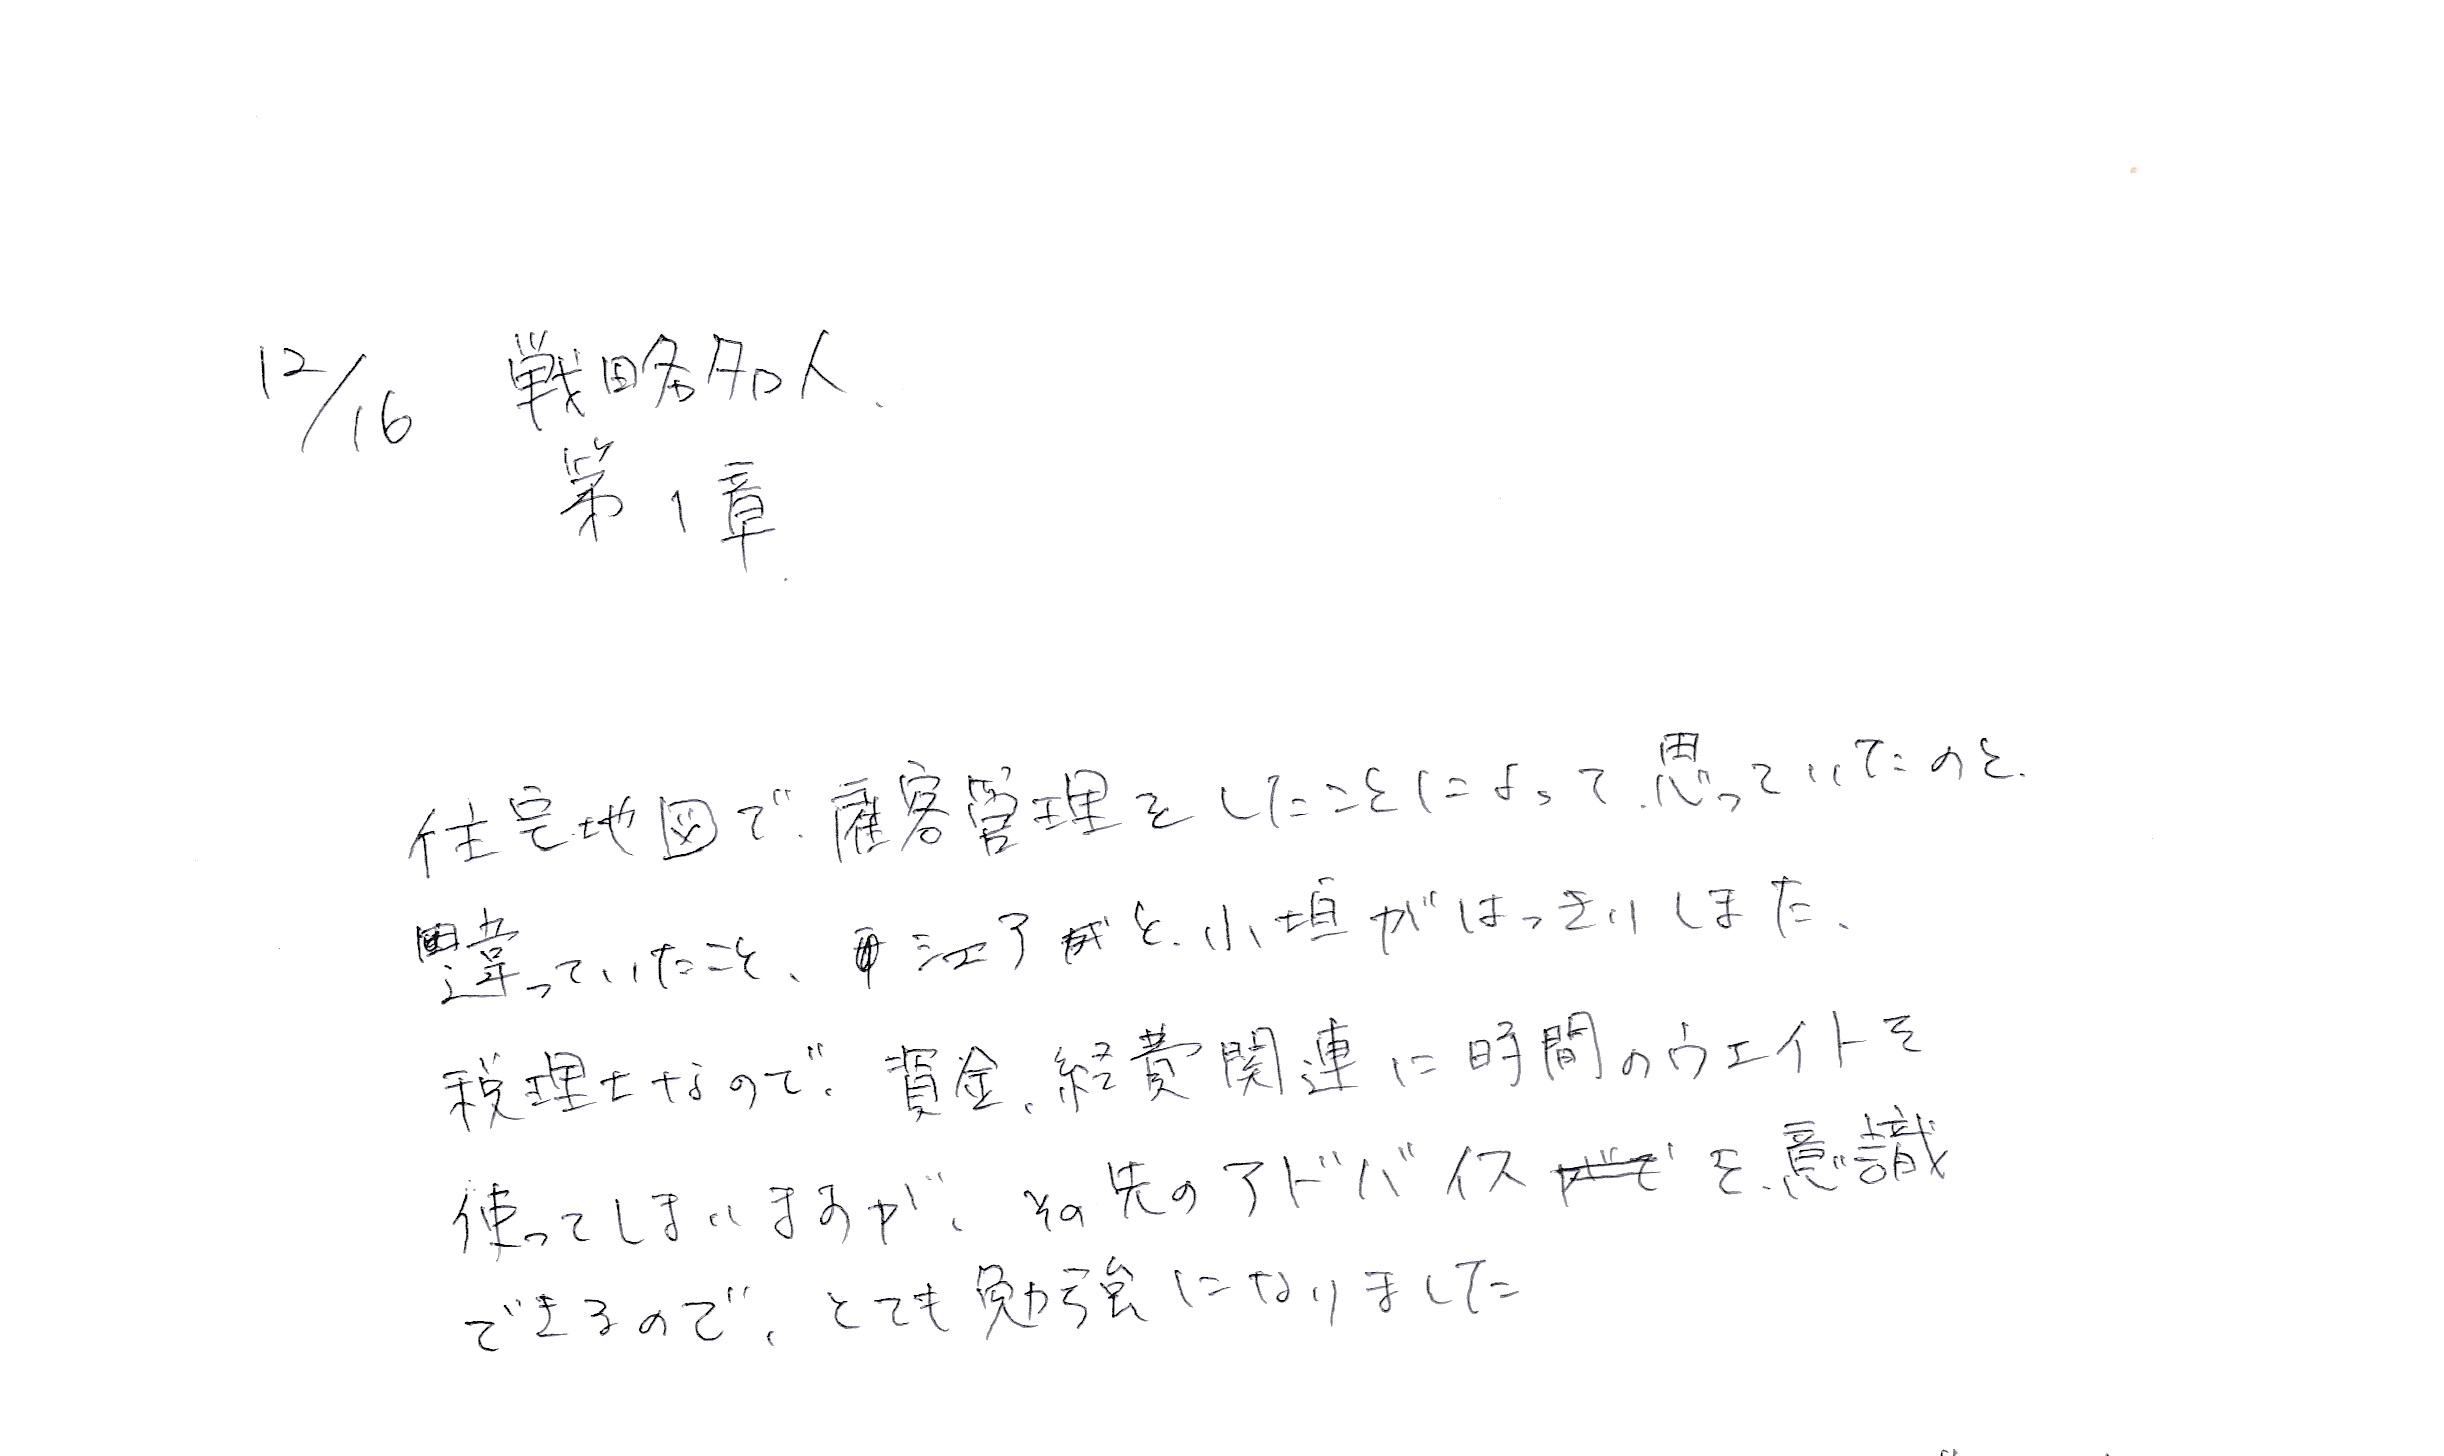 12/16 戦略名人.
第1章
住宅地図で、顧客管理をしたことによって、思っていたのと、
違っていたこと、江アと、小垣がはっきりしました、
税理士なので、資金、経費関連に時間のウエイトを
使ってしまいますが、その先のアドバイスを、意識
できるので、とても勉強になりました